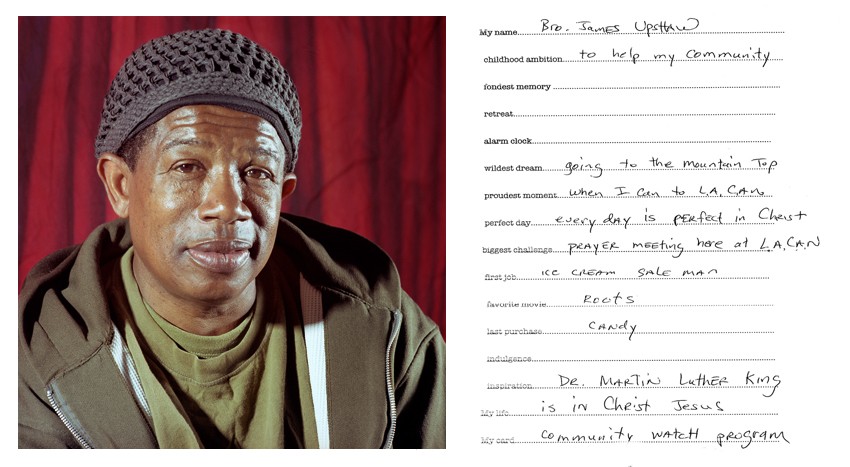 My name...Bro. James Upshaw
childhood ambition...to help my community
fondest memory
retreat
alarm clock
wildest dream...going to the mountain Top
proudest moment...when I Can to L.A. C.A.N
perfect day...every day is perfect in Christ
biggest challenge...prayer meeting here at L.A.CAN
first job...ice cream sale man
favorite movie...Roots
last purchase...candy
indulgence
inspiration...Dr. Martin Luther King
My life...is in Christ Jesus
My card...community watch program